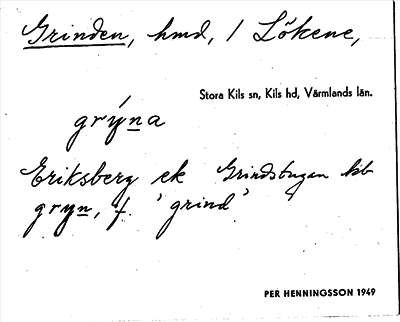 Grinden, hmd, 1 Lökene,
Stora Kils sn, Kils hd, Värmlands län.
grýna
Eriksberg ek Grindstugan bb
gryn, f. 'grind'
PER HENNINGSSON 1949